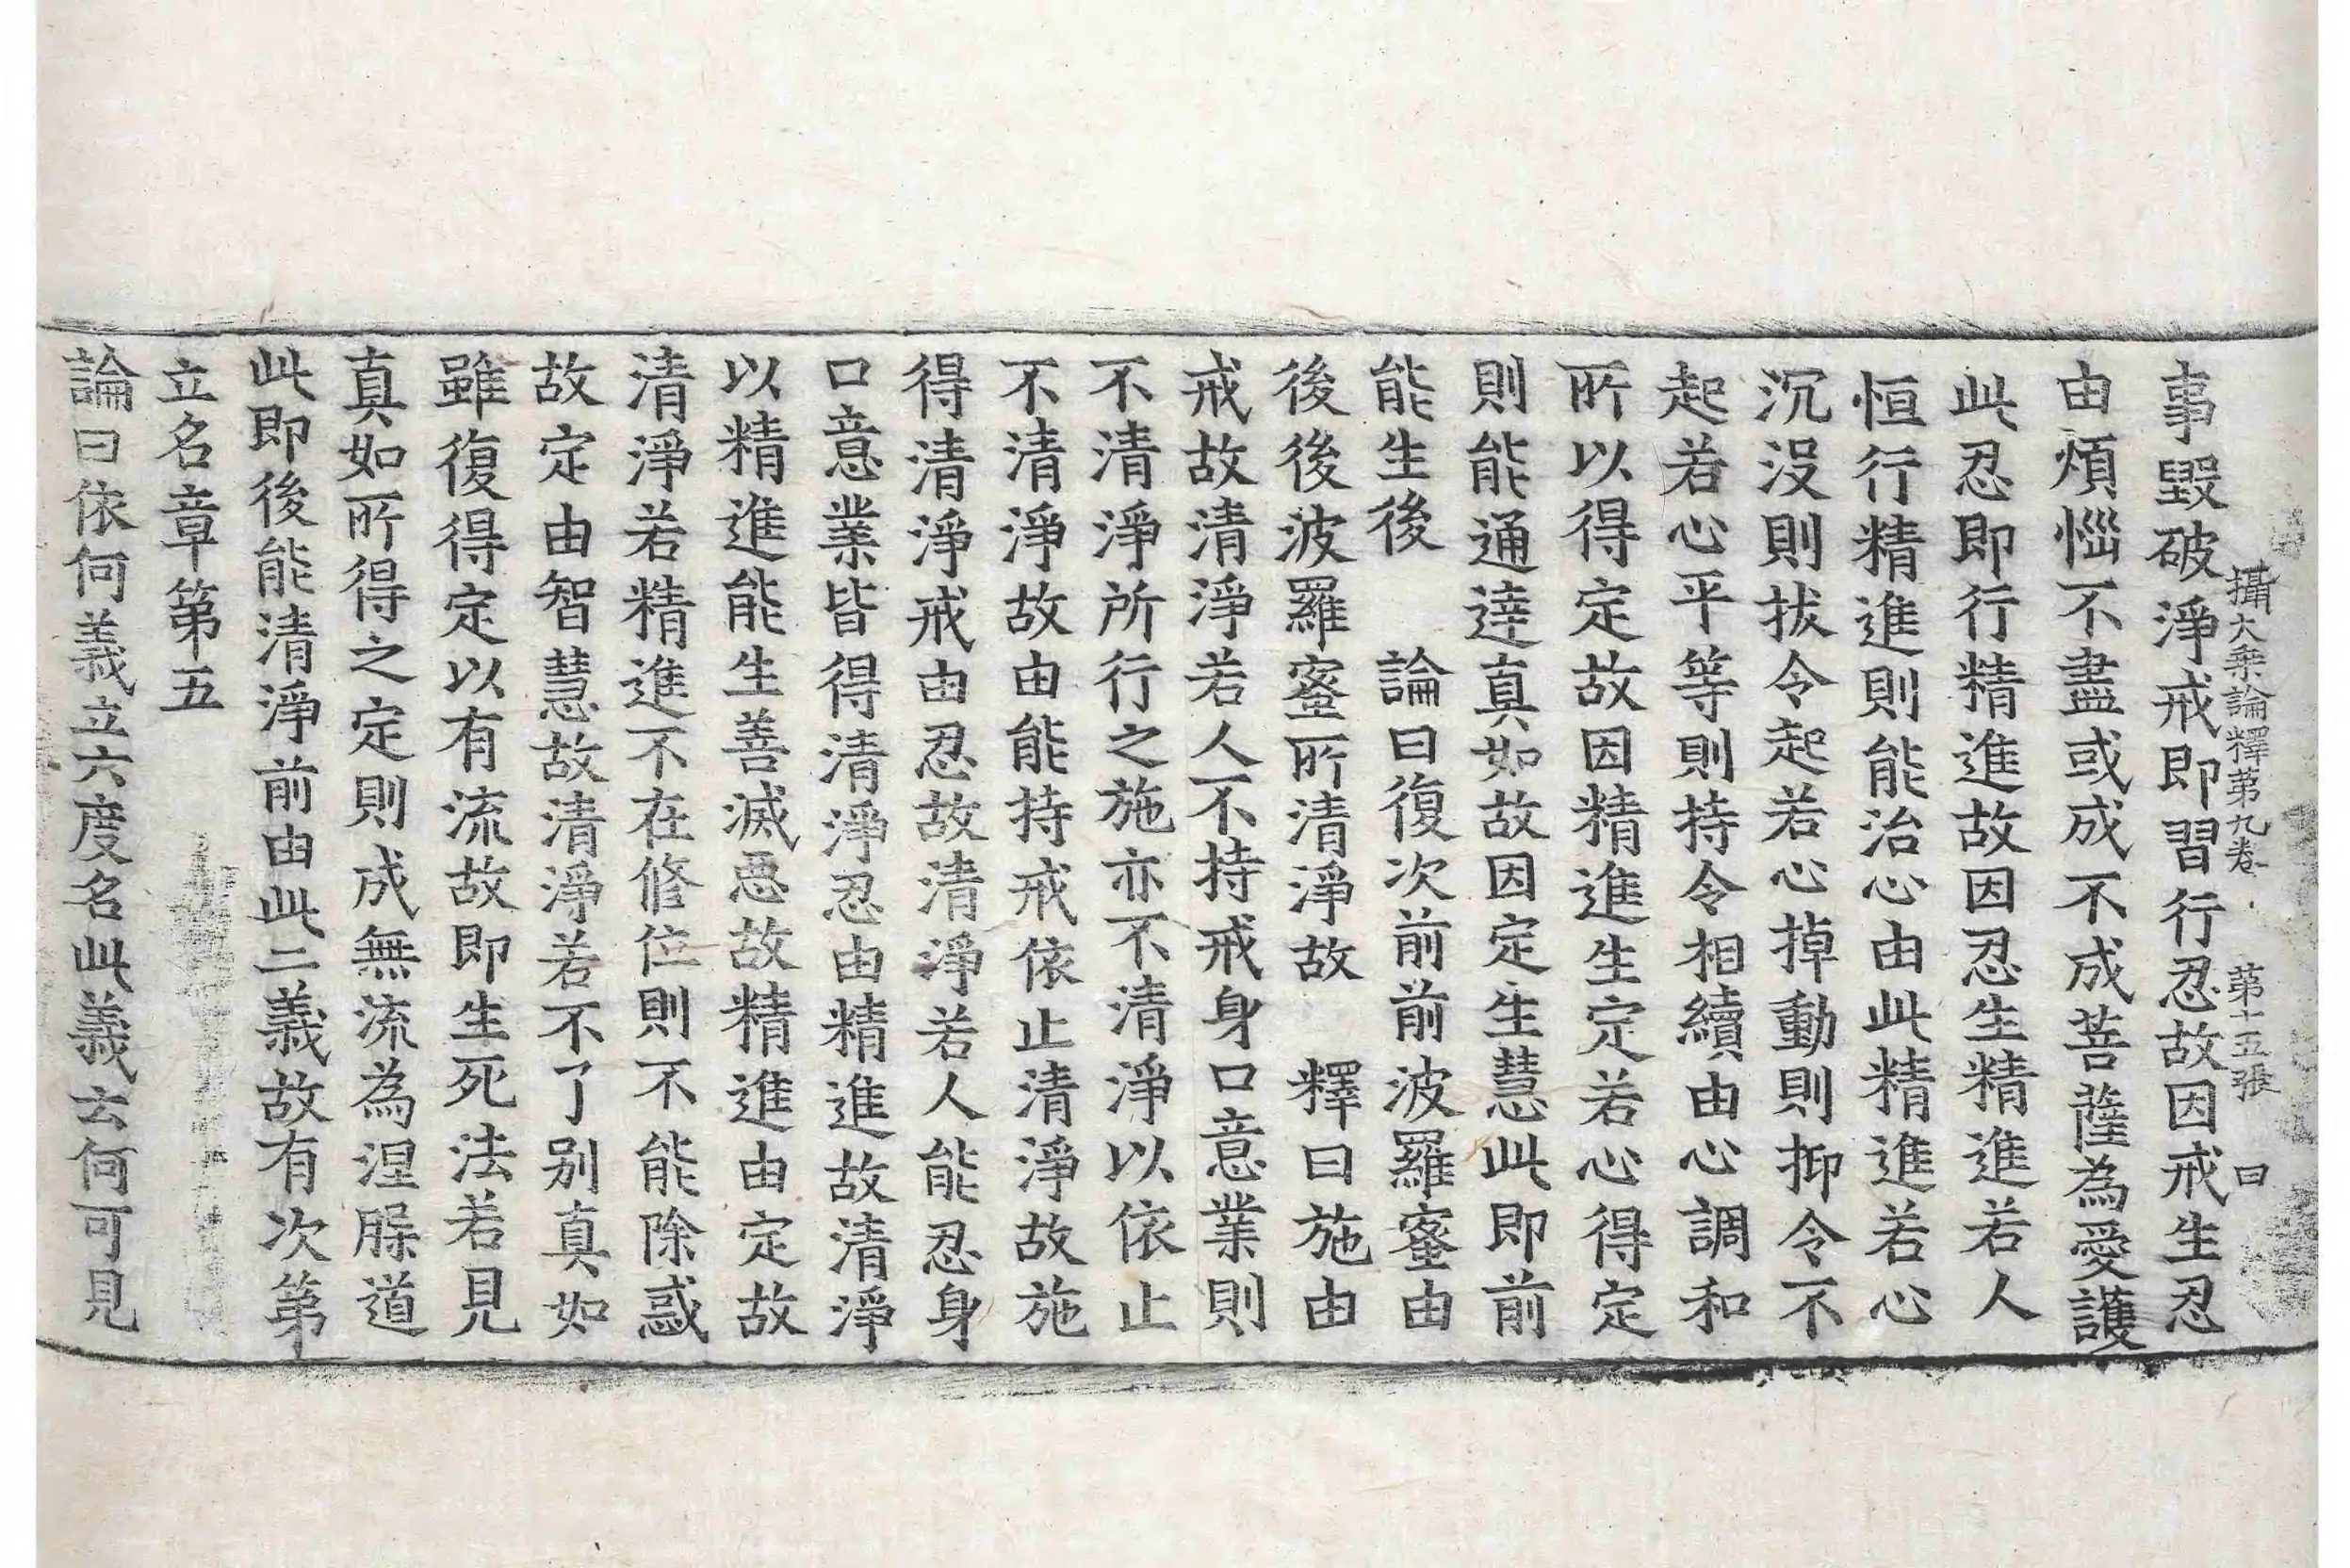 攝大乗論釋第九卷 第十五張 曰
事毀破淨戒即習行忍故因戒生忍
由煩惱不盡或成不成菩薩為愛護
此忍即行精進故因忍生精進若人
恒行精進則能治心由此精進若心
沉沒則拔令起若心掉動則抑令不
起若心平等則持令相續由心調和
所以得定故因精進生定若心得定
則能通達真如故因定生慧此即前
能生後 論曰復次前前波羅蜜由
後後波羅蜜所清淨故 釋曰施由
戒故清淨若人不持戒身口意業則
不清淨所行之施亦不清淨以依止
不清淨故由能持戒依止清淨故施
得清淨戒由忍故清淨若人能忍身
口意業皆得清淨忍由精進故清淨
以精進能生善滅惡故精進由定故
清淨若精進不在修位則不能除惑
故定由智慧故清淨若不了別真如
雖復得定以有流故即生死法若見
真如所得之定則成無流為涅槃道
此即後能清淨前由此二義故有次第
立名章第五
論曰依何義立六度名此義云何可見